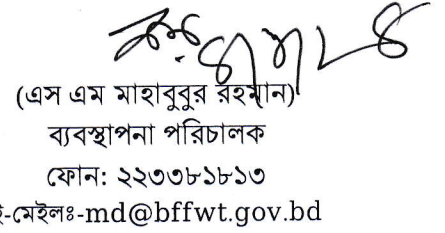 (এস এম মাহাবুবুর রহমান)
ব্যবস্থাপনা পরিচালক
ফোন: ২২৩৩৮১৮১৩
ই-মেইলঃ-md@bffwt.gov.bd